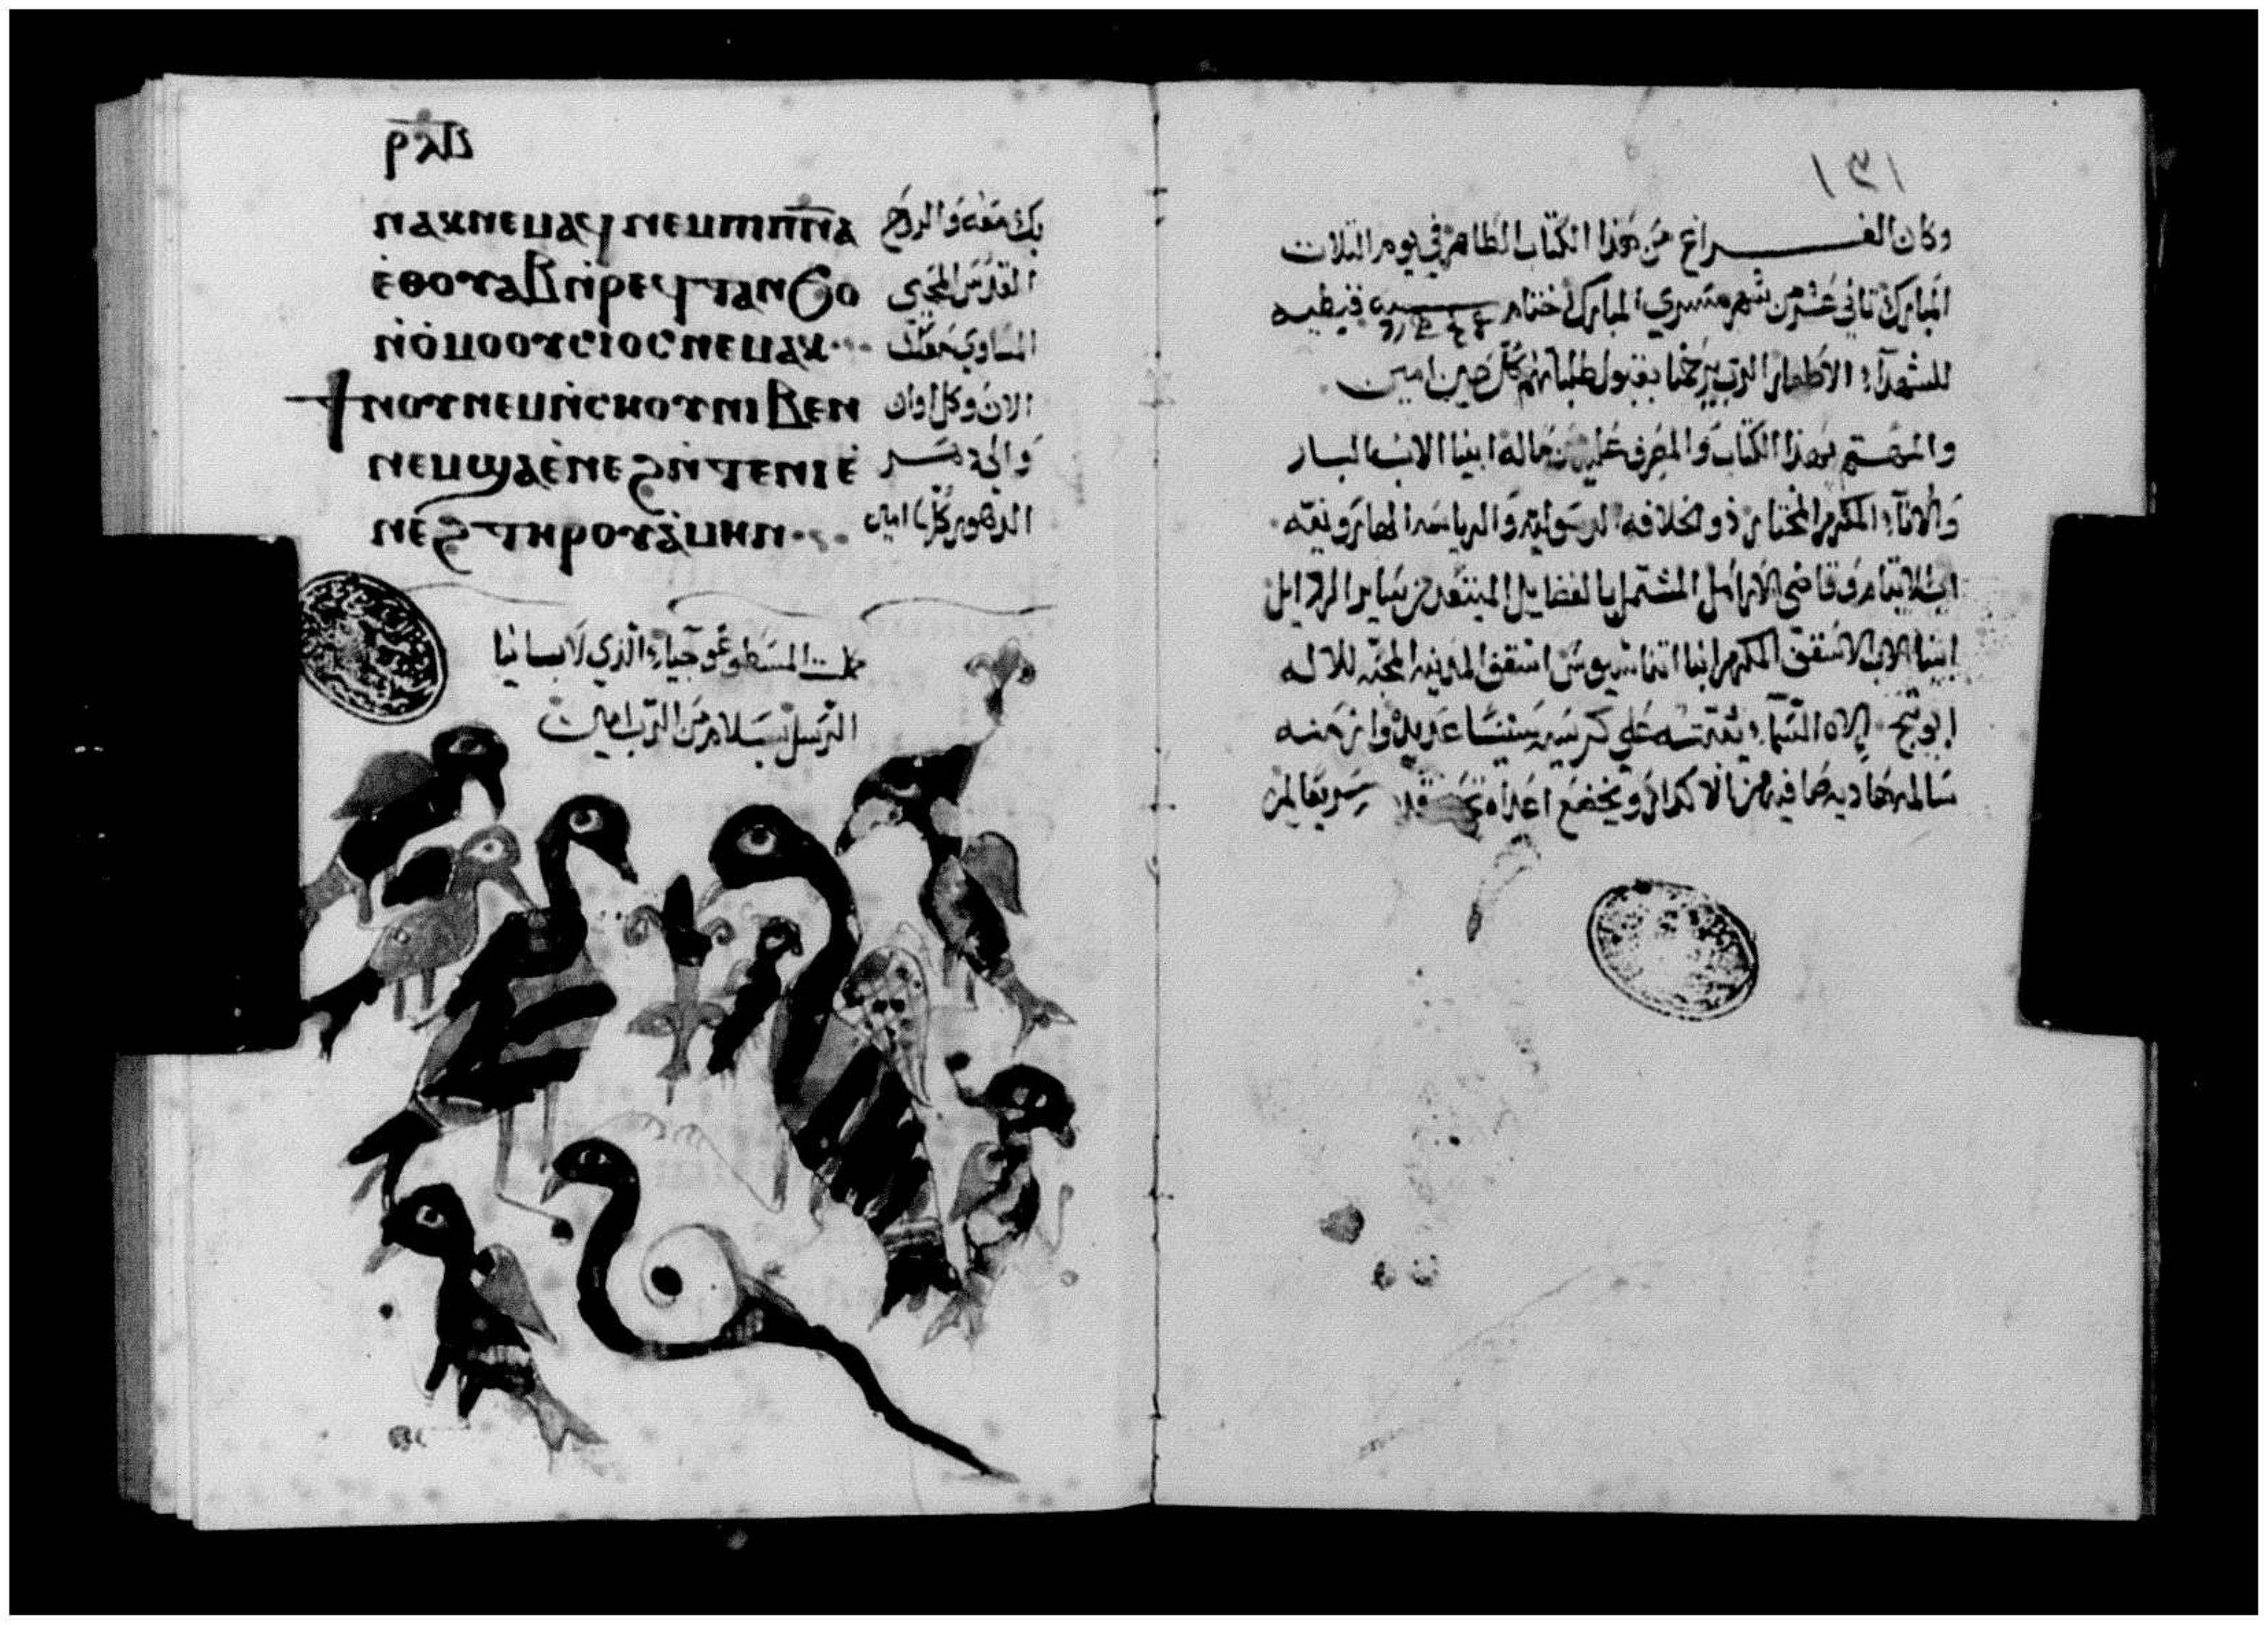 ⲣⲗⲁ
ⲛⲁⲕ ⲛⲉⲙⲁϥ ⲛⲉⲙ ⲡⲓⲡ̅ⲛ̅ⲁ̅ بك معه والروح
ⲉ̀ⲑⲟⲩⲁⲃ ⲛ̀ⲣⲉϥⲧⲁⲛϧⲟ القدس المحيي
ⲛ̀ⲟ̀ⲙⲟⲟⲩⲥⲓⲟⲥ ⲛⲉⲙⲁⲕ المساوي معك
ϯⲛⲟⲩ ⲛⲉⲙ ⲛ̀ⲥⲏⲟⲩ ⲛⲓⲃⲉⲛ الان وكل اوان
ⲛⲉⲙ ϣⲁ ⲉ̀ⲛⲉϩ ⲛ̀ⲧⲉ ⲛⲓⲉ والى دهر
ⲛⲉϩ ⲧⲏⲣⲟⲩ ⲁ̀ⲙⲏⲛ الدهور كلها امين
الترسل بسلام من الرب امين
١٣١
وكان الفراغ من هذا الكتاب الطاهر في يوم التلات
المبارك تاني عشر من شهر مسري المبارك ختام قبطيه
للشهدآء الاطهار الرب يرحمنا بقبول طلباتهم كل حين امين
والمهتم بهذا الكتاب والمصرف عليه من ماله ابينا الاب البار
المكرم المختار ذو الخلافه الرسوليه والرياسه
وقاضي الارامل المشتمل بالفضايل المبتعد من ساير الردايل
ابينا الاب الاسقف المكرم انبا اتناسيوس اسقف المدينه المحبه للاله
ابوتيج الاه السماء يتبته علي كرسيه سنينا عديده وازمنه
سالمه هاديه صافيه من الاكدار ويخضع اعداه تحت سريعا امين